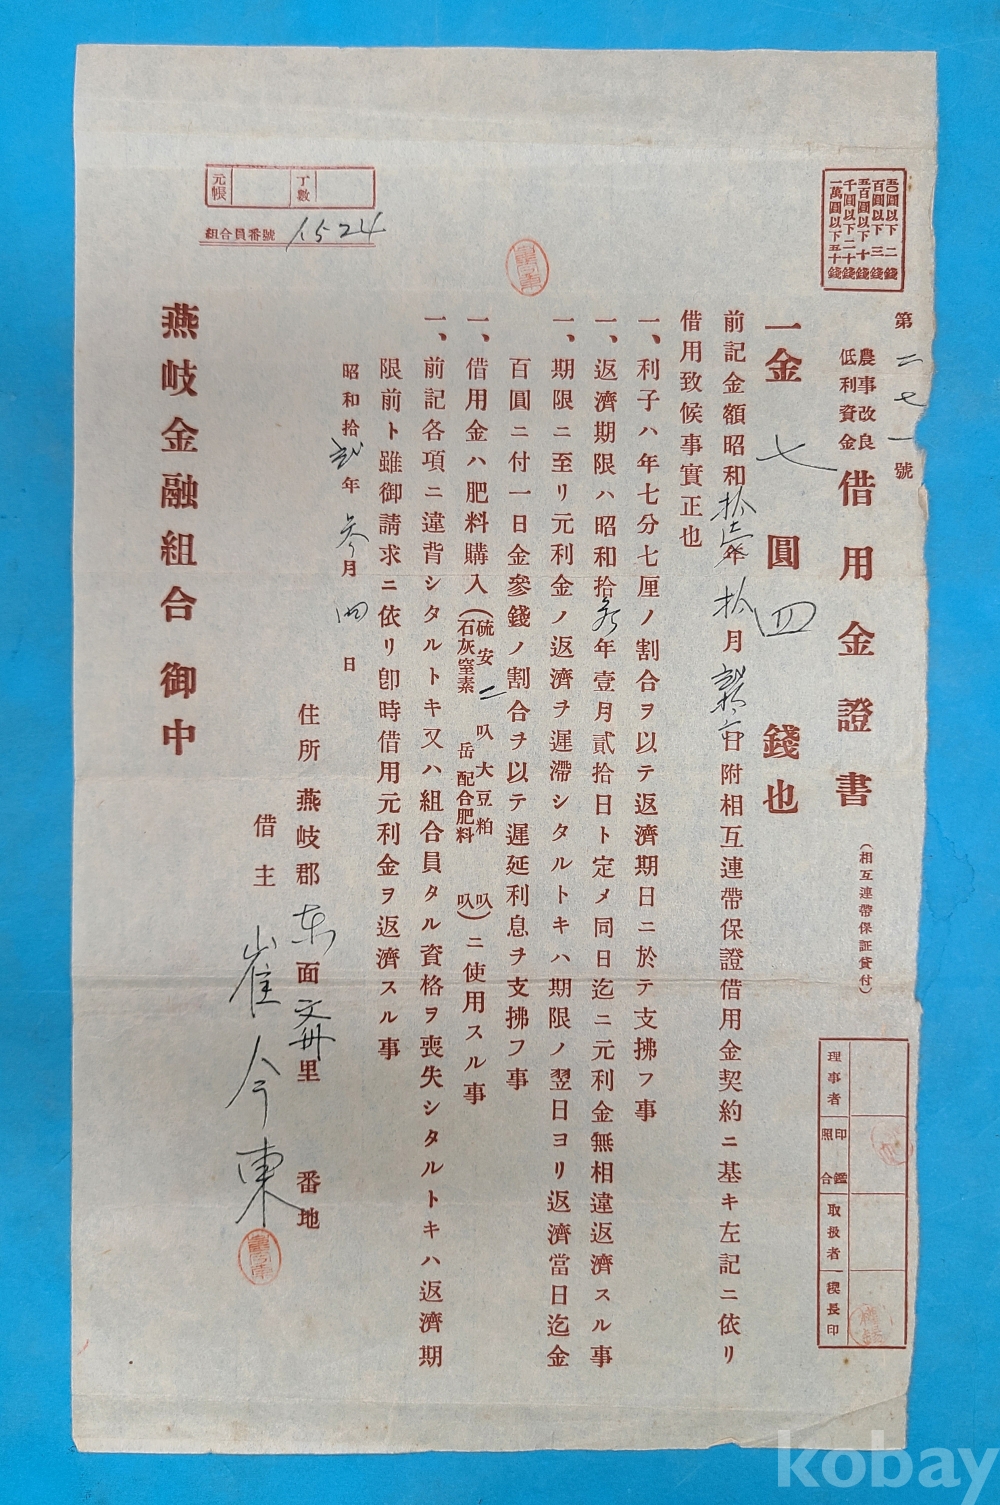 五〇圓以下 二錢
百圓以下 三錢
五百圓以下 十錢
千圓以下 二十錢
一萬圓以下 五十錢
第二七一號
農事改良
低利資金
借用金證書
(相互連帶保証貸付)
一金 七圓四 錢也
前記金額昭和拾壹年拾月貳拾 日附相互連帶保證借用金契約ニ基キ左記ニ依リ
借用致候事實正也
一、利子ハ年七分七厘ノ割合ヲ以テ返濟期日ニ於テ支拂フ事
一、返濟期限ハ昭和拾參年壹月貳拾日ト定メ同日迄ニ元利金無相違返濟スル事
一、期限ニ至リ元利金ノ返濟ヲ遲滯シタルトキハ期限ノ翌日ヨリ返濟當日迄金
百圓ニ付一日金參錢ノ割合ヲ以テ遲延利息ヲ支拂フ事
一、借用金ハ肥料購入(硫安二叺 大豆粕 叺
石灰窒素 叺 配合肥料 叺)ニ使用スル事
一、前記各項ニ違背シタルトキ又ハ組合員タル資格ヲ喪失シタルトキハ返濟期
限前ト雖御請求ニ依リ卽時借用元利金ヲ返濟スル事
昭和拾貳年參月四日
住所 燕岐郡東面文舟里 番地
借主 崔今東
燕岐金融組合 御中
元帳
丁數
組合員番號 1524
理事者
印鑑照合
取扱者
稧長印
kobay